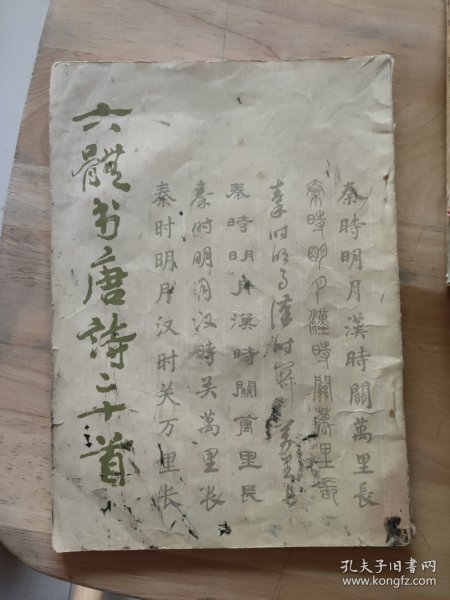 六體书唐诗二十首
秦時明月漢時關萬里長
秦時明月漢時關萬里長
秦时明月漢时關萬里長
秦時明月漢時關萬里長
秦时明月汉时关萬里长
秦时明月汉时关万里长
孔夫子旧书网
www.kongfz.com